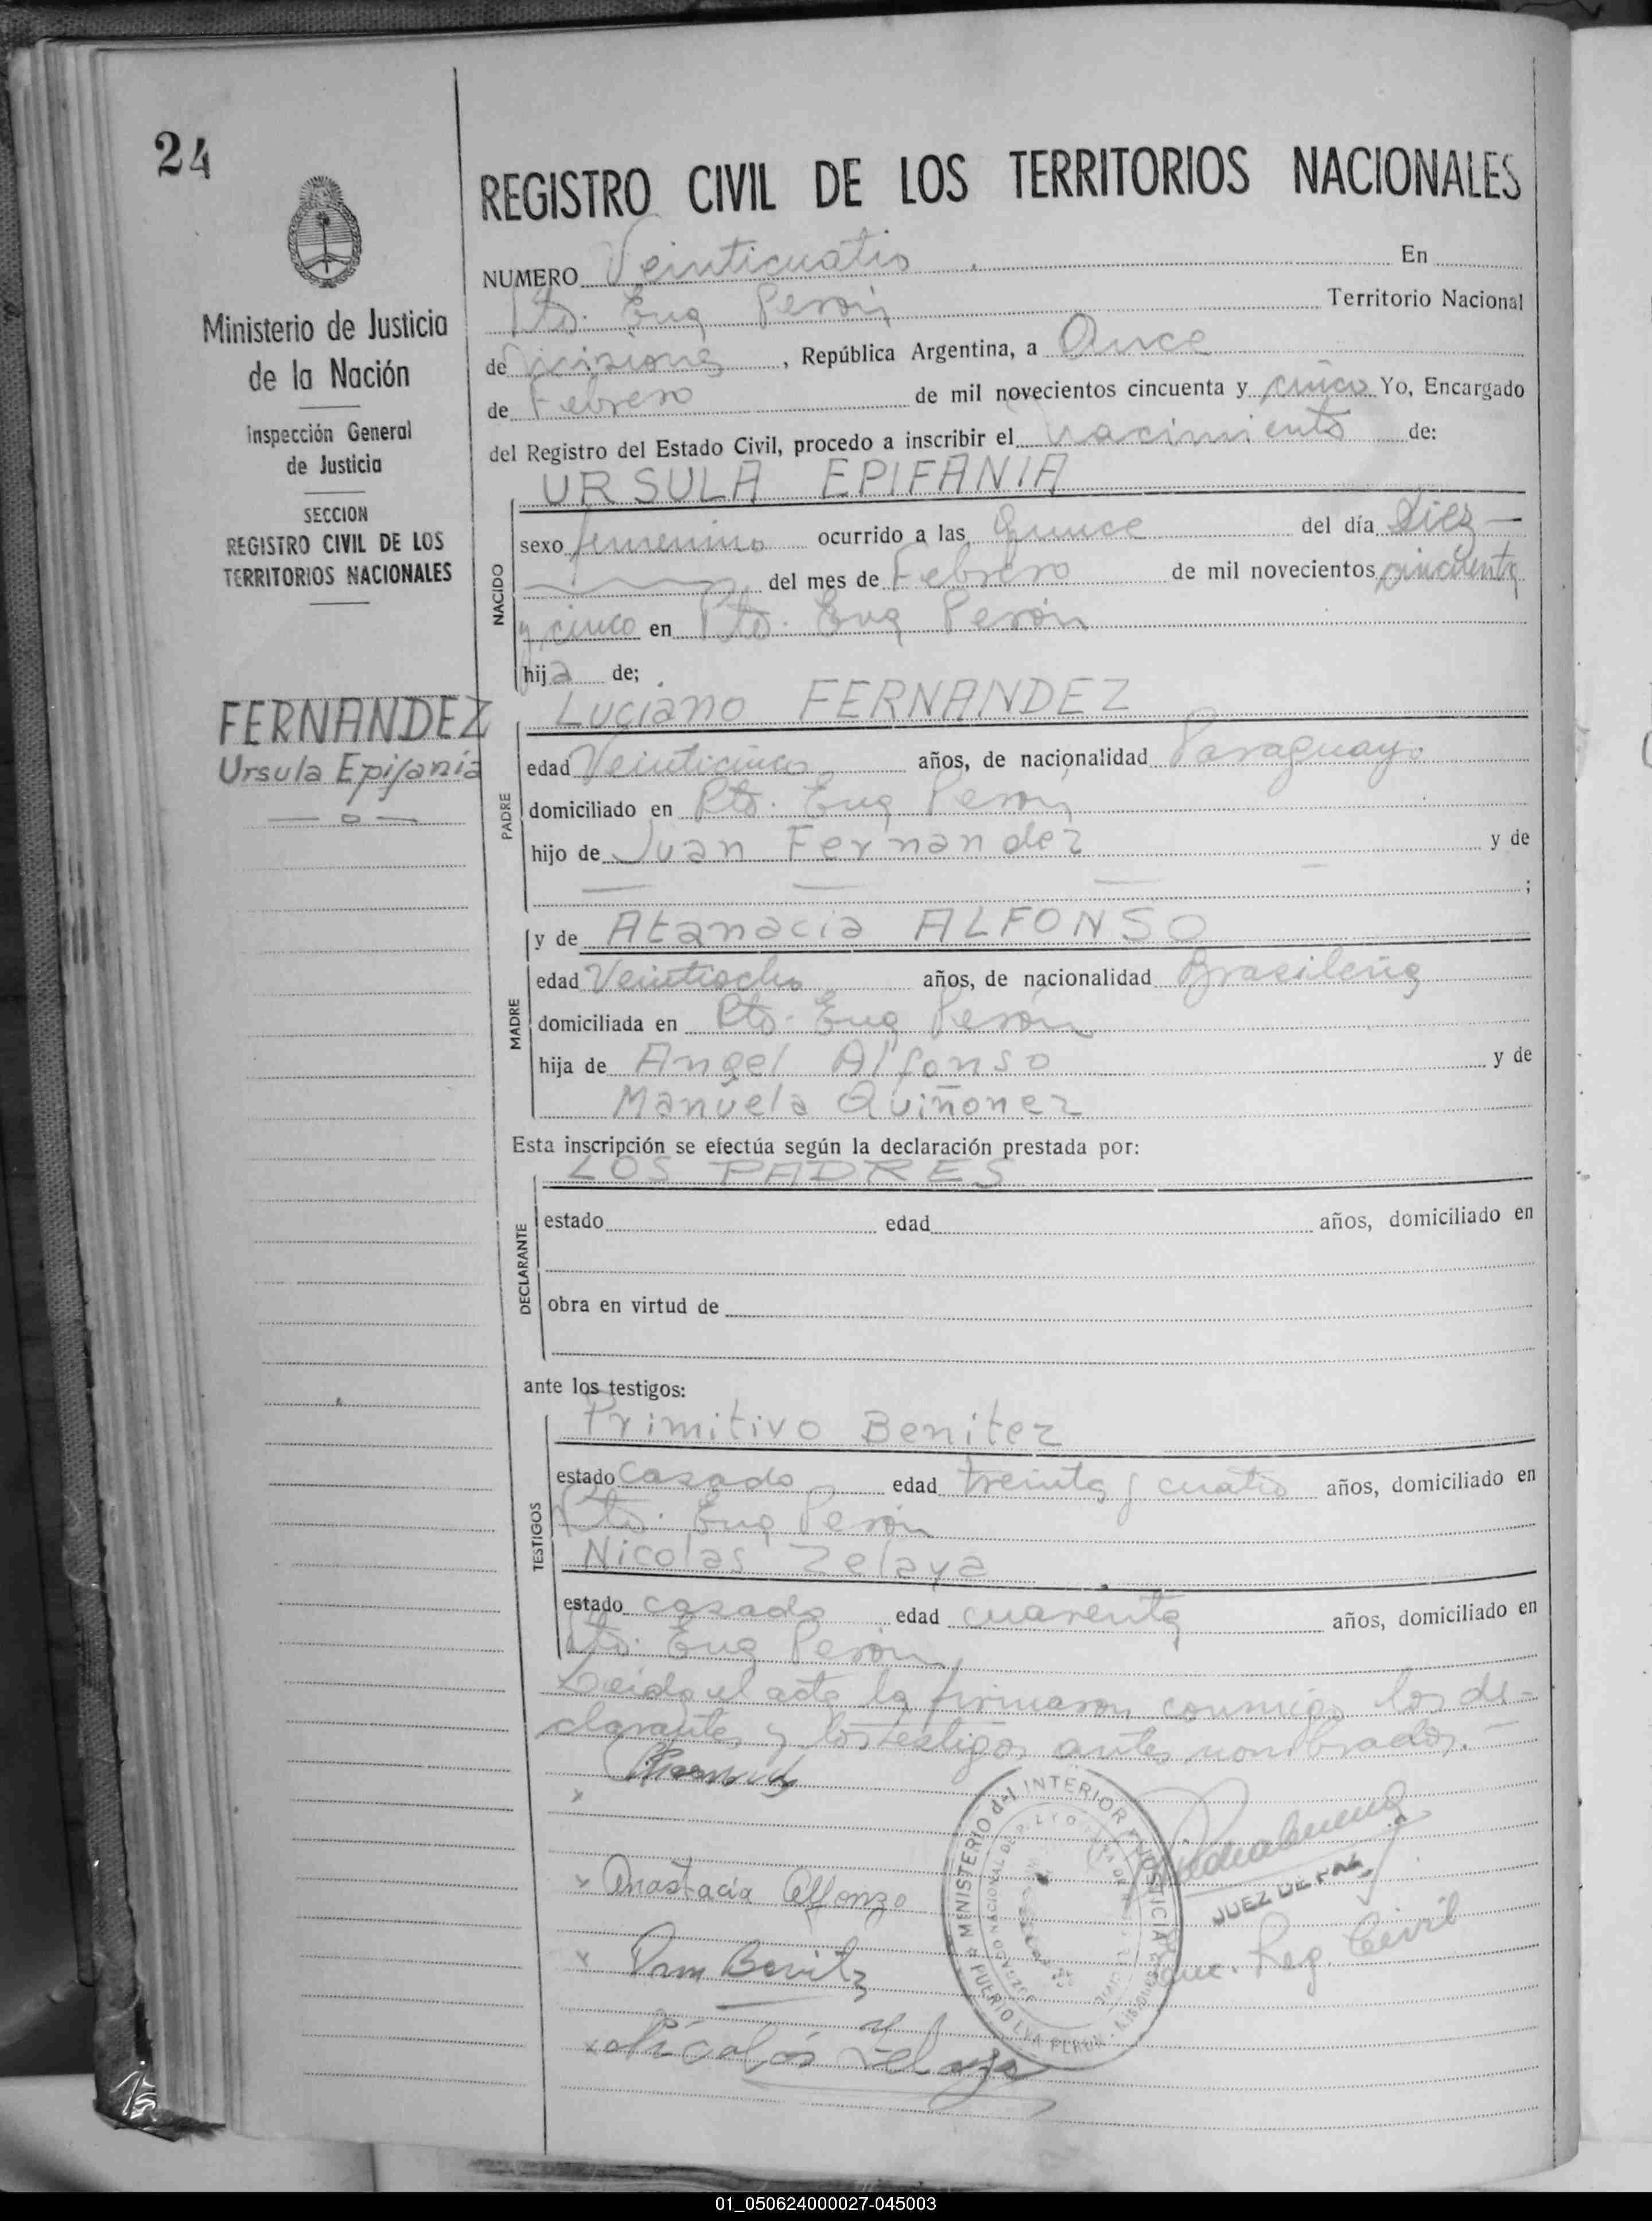 24
REGISTRO CIVIL DE LOS TERRITORIOS NACIONALES
NUMERO Veinticuatro En
Pto. Eva Perón Territorio Nacional
de Misiones, República Argentina, a Once
de Febrero de mil novecientos cincuenta y cinco Yo, Encargado
del Registro del Estado Civil, procedo a inscribir el nacimiento de:
Ministerio de Justicia
de la Nación
Inspección General
de Justicia
SECCION
REGISTRO CIVIL DE LOS
TERRITORIOS NACIONALES
FERNANDEZ
Ursula Epifania
NACIDO
URSULA EPIFANIA
sexo femenino ocurrido a las Quince del día Diez
del mes de Febrero de mil novecientos cincuenta
y cinco en Pto. Eva Perón
hija de;
PADRE
Luciano FERNANDEZ
edad Veinticinco años, de nacionalidad Paraguay.
domiciliado en Pto. Eva Perón
hijo de Juan Fernandez y de
;
MADRE
y de Atanacia ALFONSO
edad Veintiocho años, de nacionalidad Brasileña
domiciliada en Pto. Eva Perón
hija de Angel Alfonso y de
Manuela Quiñonez
Esta inscripción se efectúa según la declaración prestada por:
DECLARANTE
LOS PADRES
estado edad años, domiciliado en
obra en virtud de
ante los testigos:
TESTIGOS
Primitivo Benitez
estado casado edad treinta y cuatro años, domiciliado en
Pto. Eva Perón
Nicolas Zelaya
estado casado edad cuarenta años, domiciliado en
Pto. Eva Perón
Leida el acta la firmaron conmigo los de-
clarantes y los testigos antes nombrados.-
x
x Anastacia Alfonzo
x Prim Benitz
x Nicolás Zelaya
MINISTERIO del INTERIOR Y JUSTICIA
PUERTO EVA PERON
JUEZ DE PAZ
Enc. Reg. Civil
01_050624000027-045003